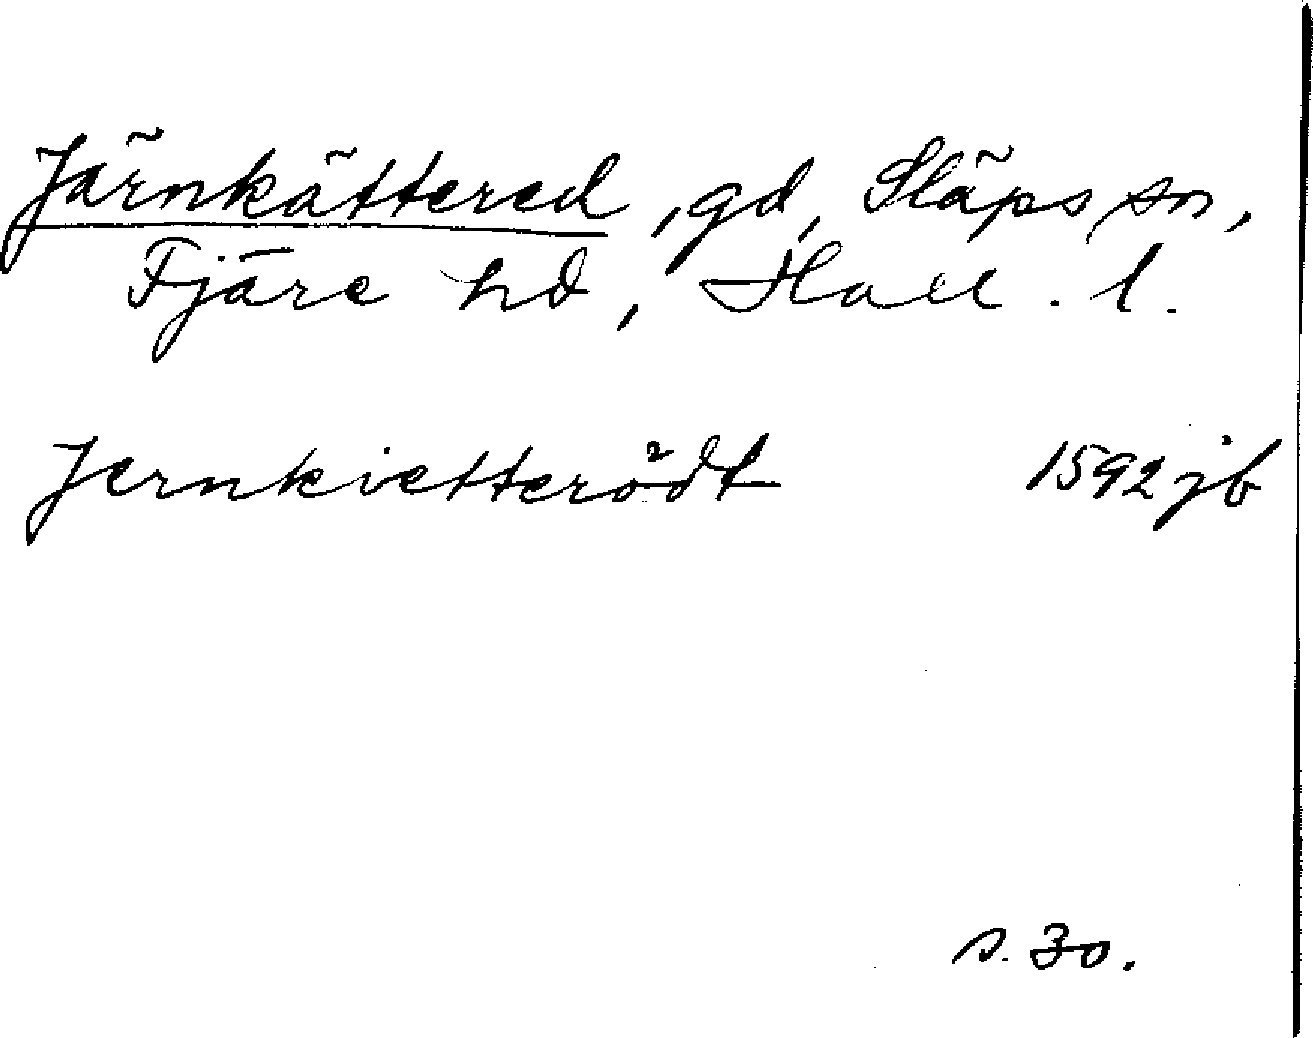 Järnkättered, gd, Släps sn,
Fjäre hd, Hall. l.
Jernkietterödt 1592 jb
s. 30.